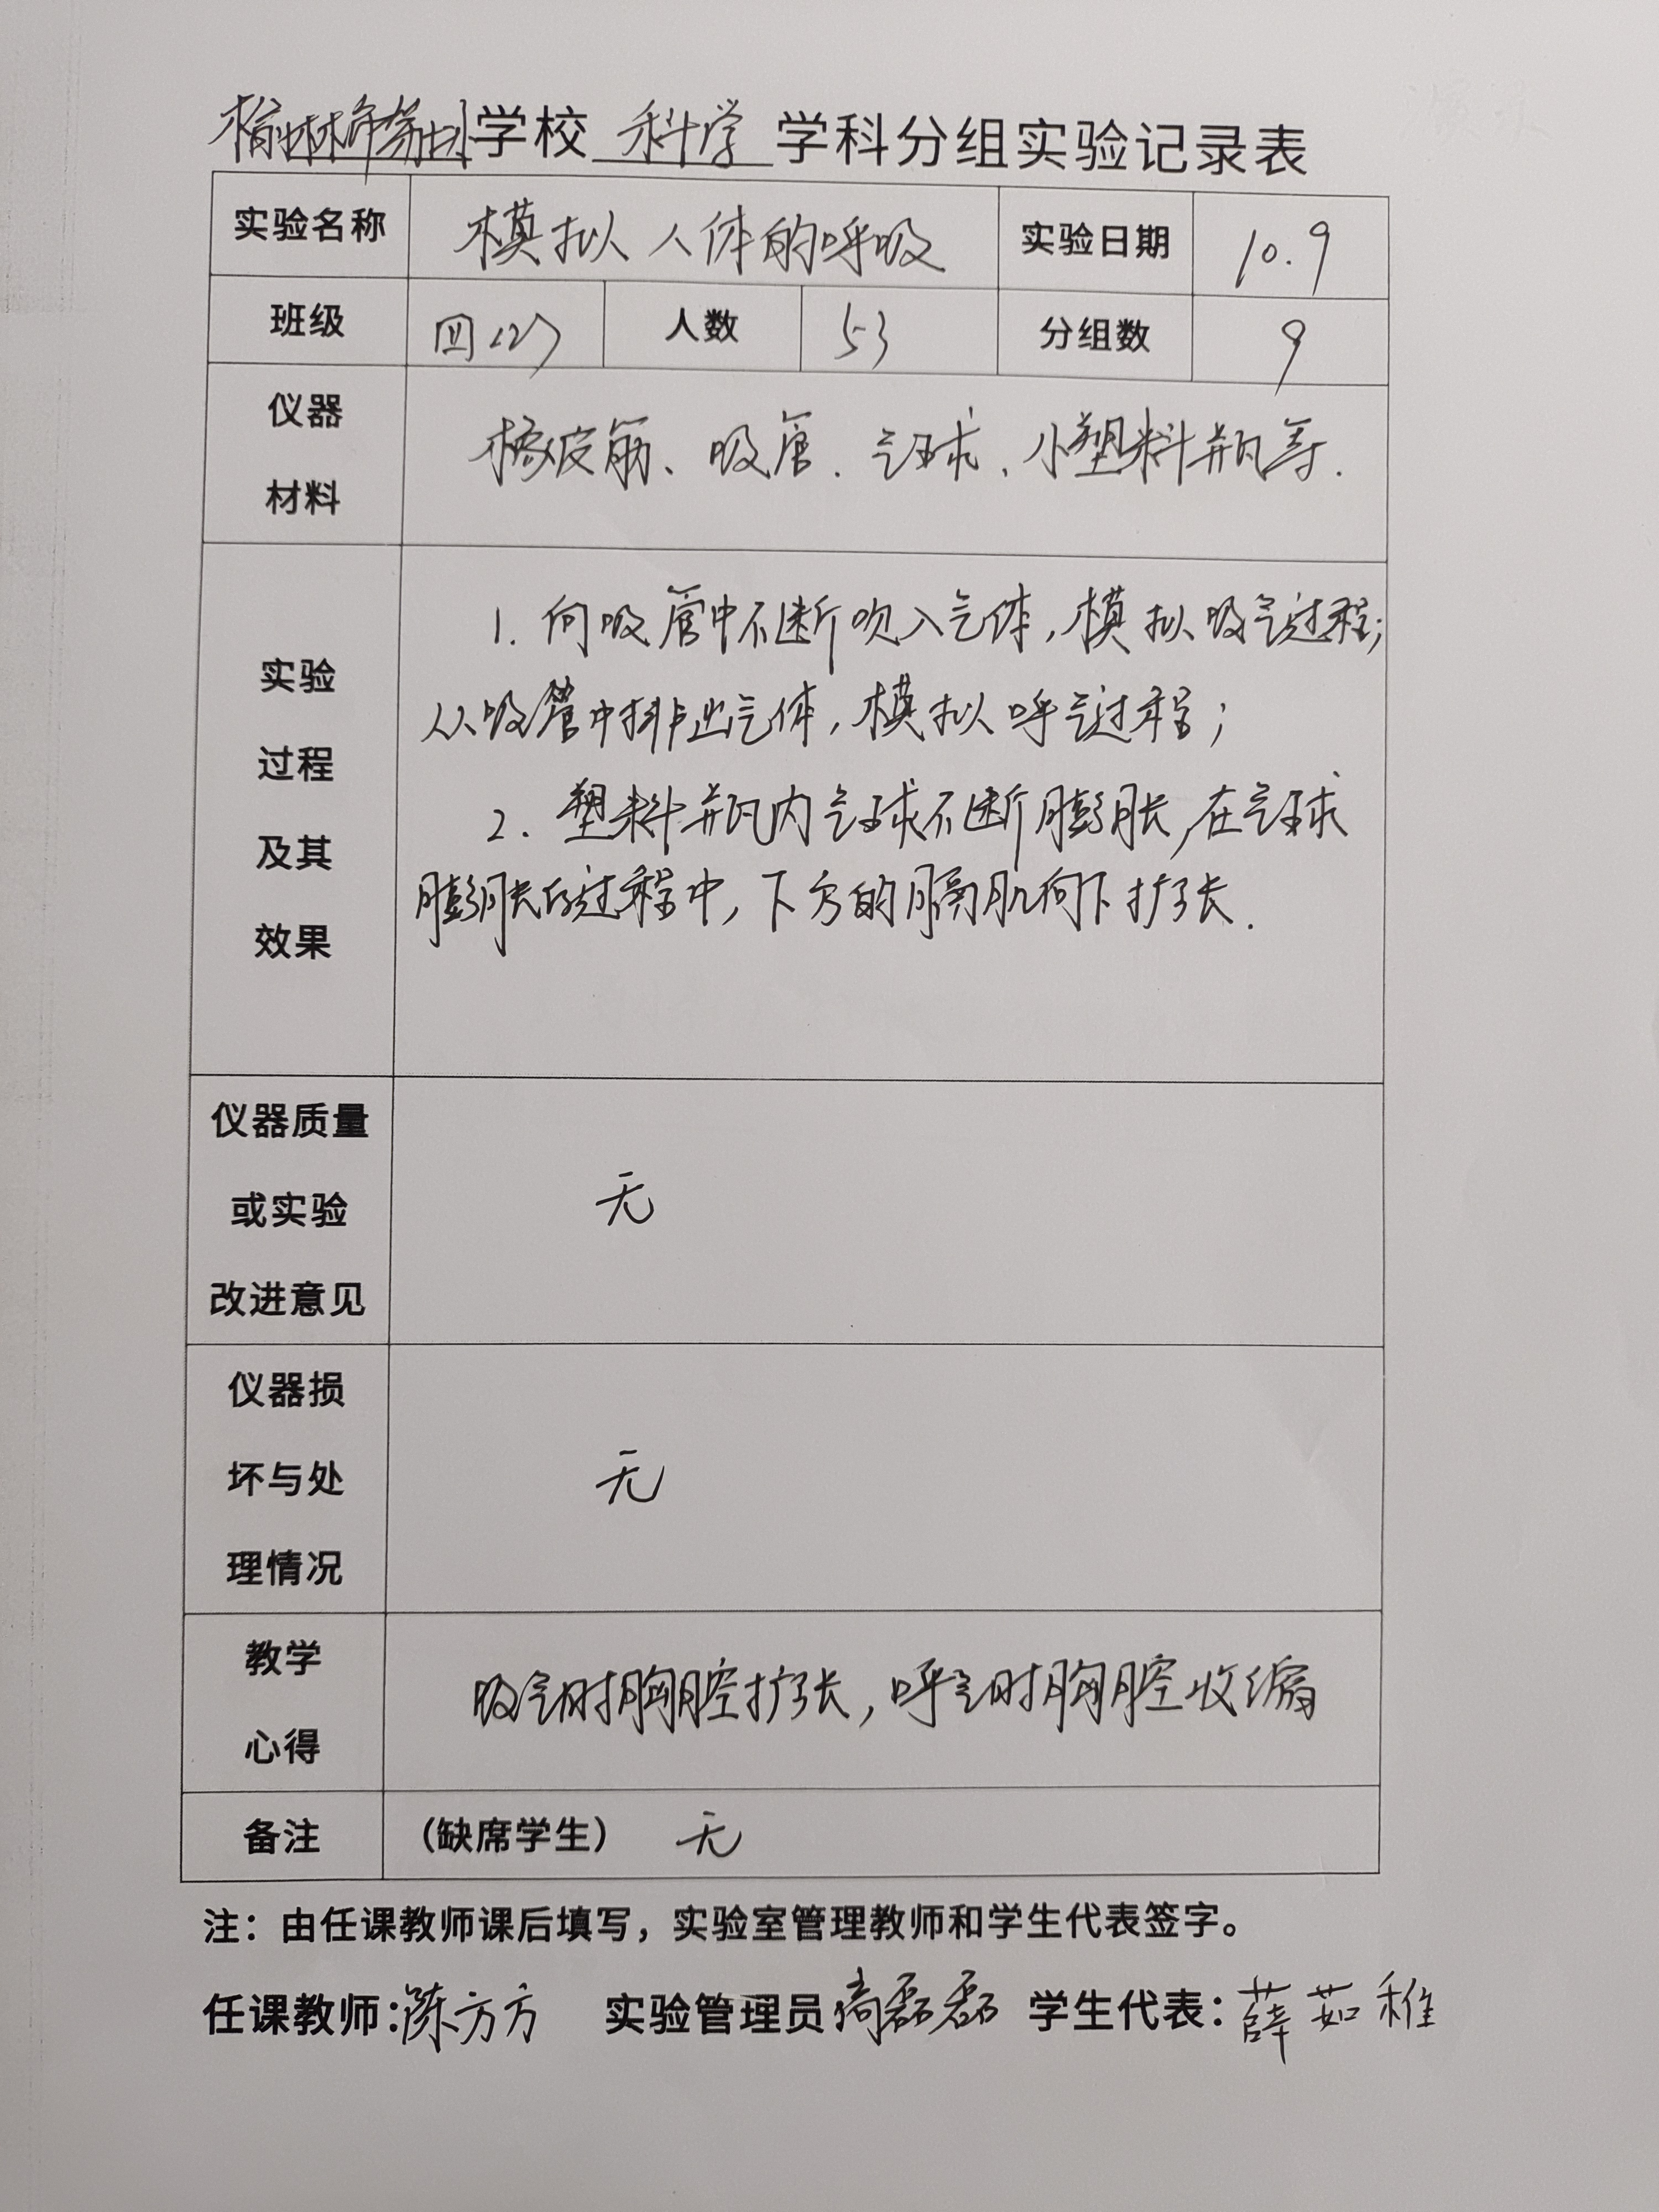 榆林市第十小学校 科学 学科分组实验记录表
实验名称 模拟人体的呼吸 实验日期 10.9
班级 四(2) 人数 53 分组数 9
仪器
材料
橡皮筋、吸管、气球、小塑料瓶等.
实验
过程
及其
效果
1. 向吸管中不断吹入气体,模拟吸气过程;
从吸管中排出气体,模拟呼气过程;
2. 塑料瓶内气球不断膨胀,在气球
膨胀的过程中,下方的膈肌向下扩张.
仪器质量
或实验
改进意见
无
仪器损
坏与处
理情况
无
教学
心得
吸气时胸腔扩张,呼气时胸腔收缩
备注 (缺席学生) 无
注：由任课教师课后填写，实验室管理教师和学生代表签字。
任课教师:陈方方 实验管理员 磊磊 学生代表：薛茹稚